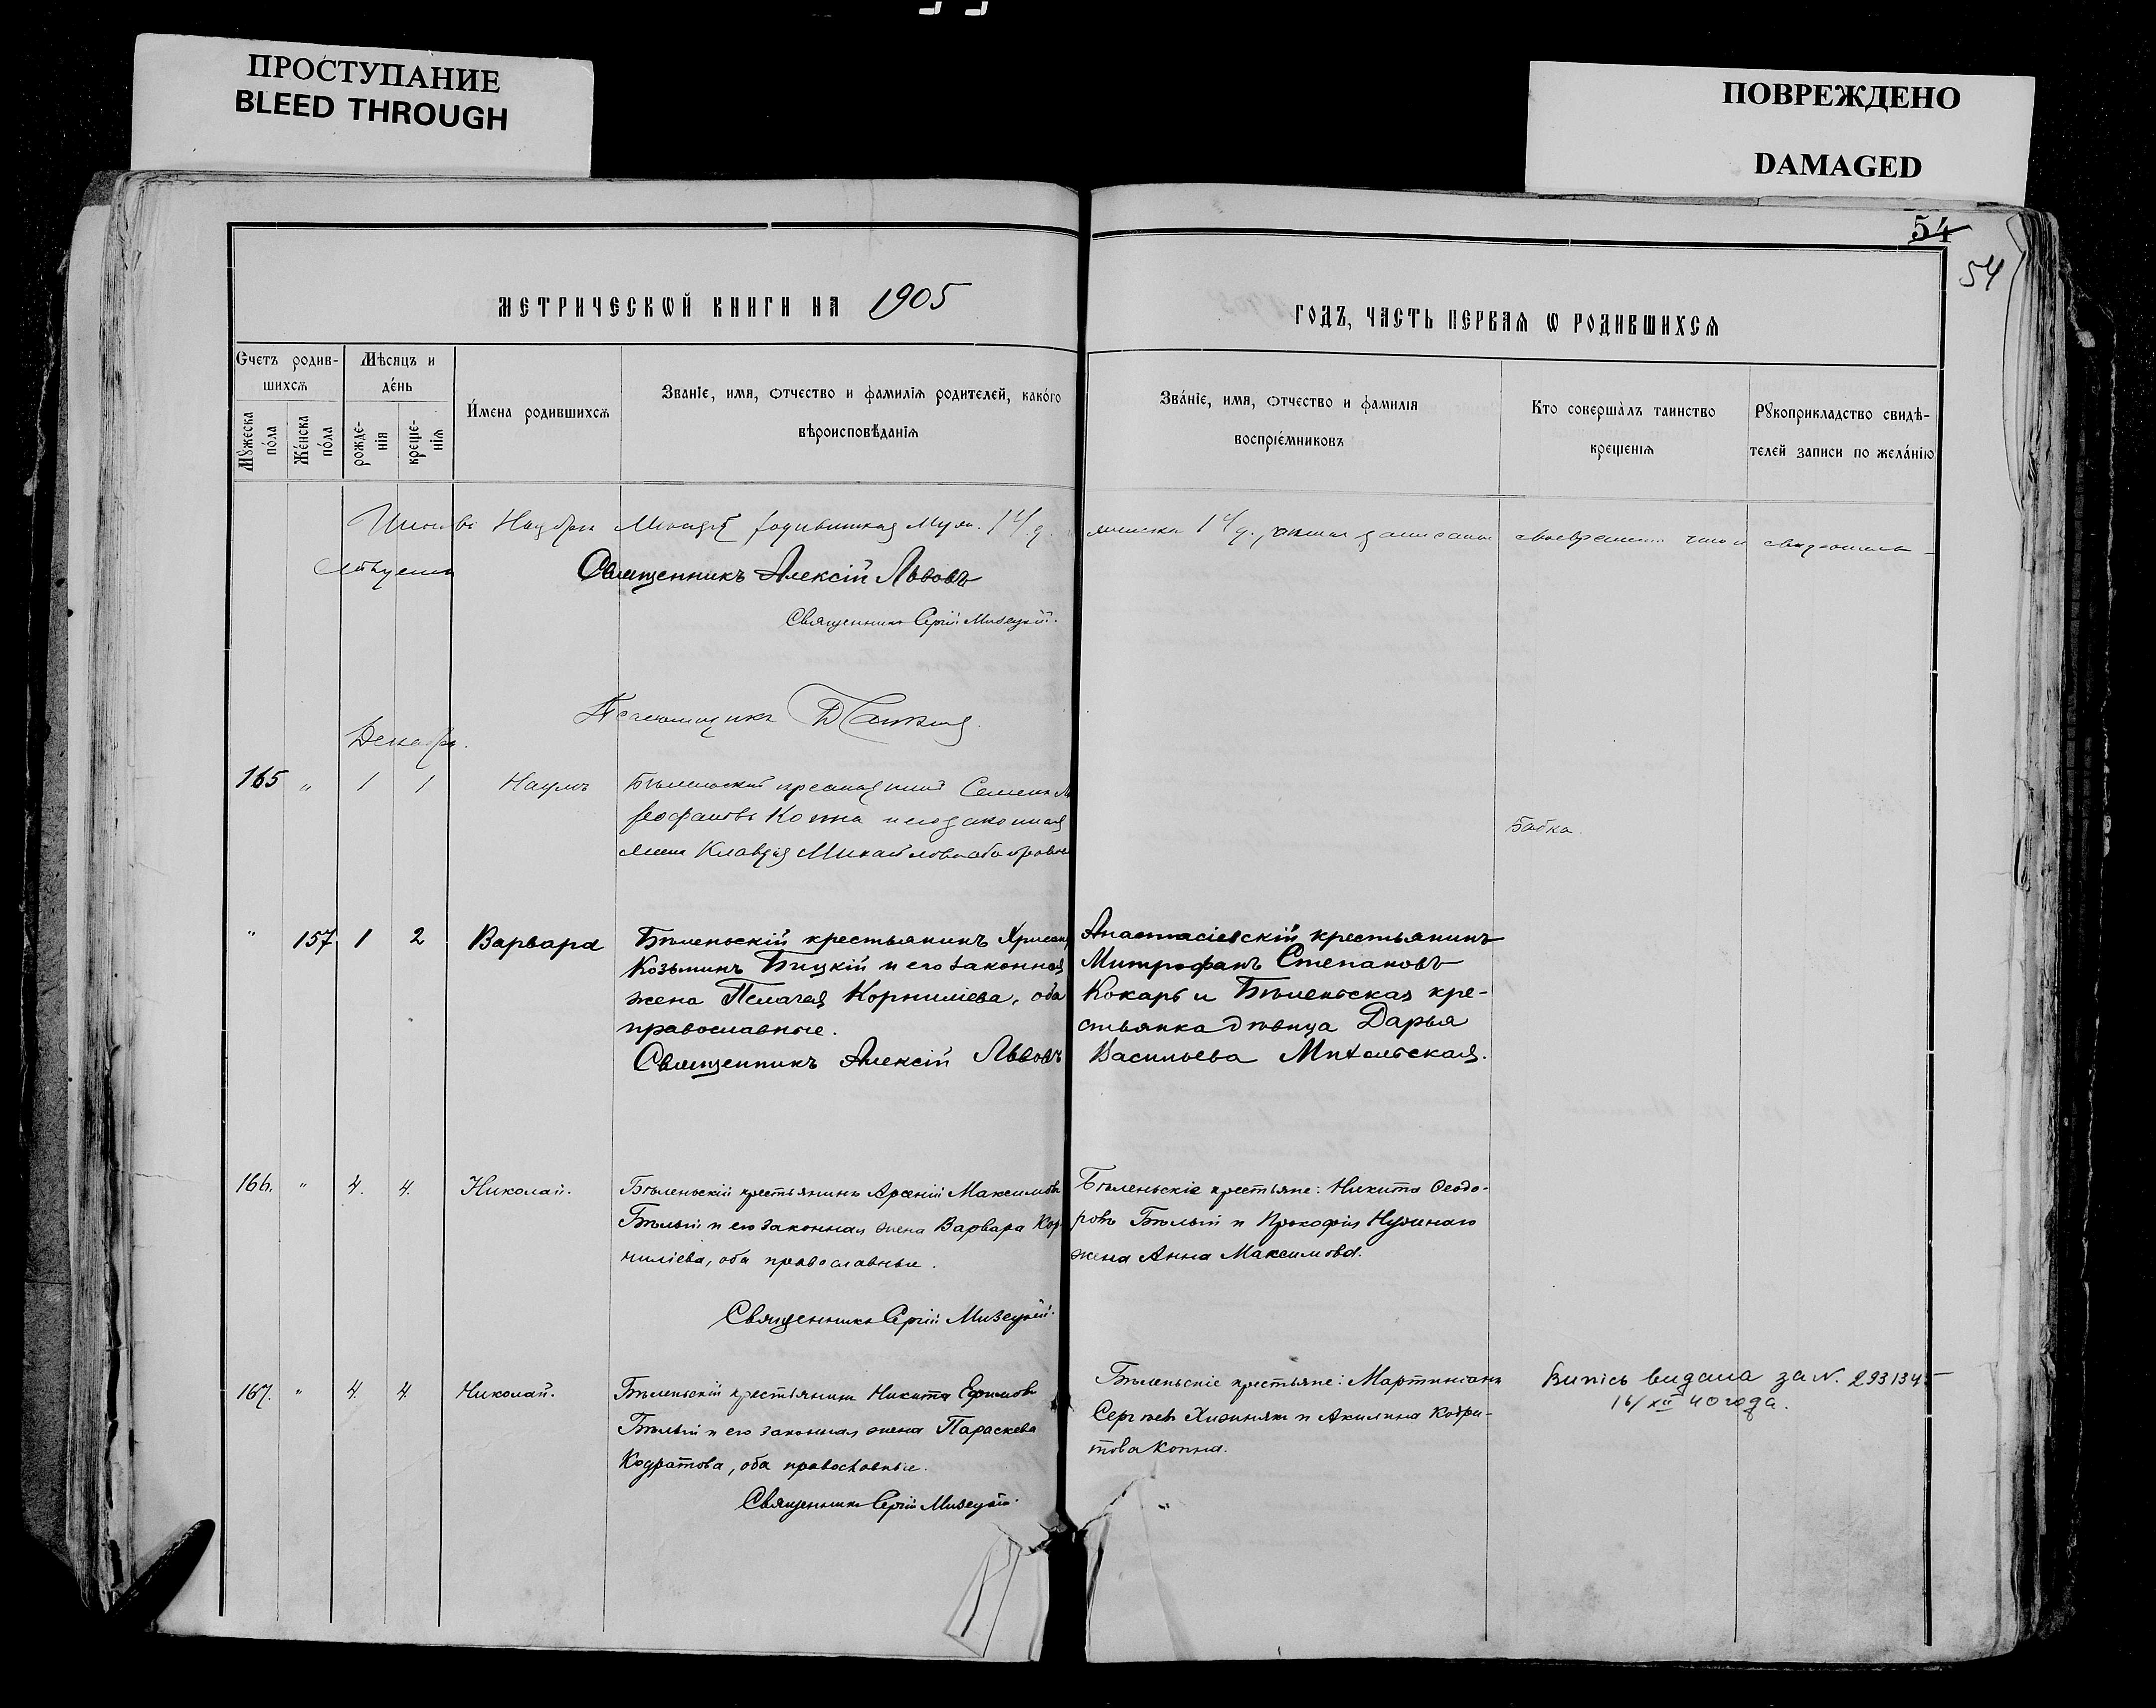 ПРОСТУПАНИЕ
BLEED THROUGH
ПОВРЕЖДЕНО
DAMAGED
54
54
МЕТРИЧЕСКѠЙ КНИГИ НА 1905
ГОДЪ, ЧАСТЬ ПЕРВАѦ Ѡ РОДИВШИХСѦ
Счетъ родив-
шихсѧ
Мꙋжеска пола
Женска пола
Мѣсяцъ и
день
рожде-
нія
креще-
нія
Имена родившихсѧ
Званіе, имя, отчество и фамилія родителей, какого
вѣроисповѣданія
Званіе, имя, отчество и фамилія
воспріемниковъ
Кто совершалъ таинство
крещенія
Рꙋкоприкладство свидѣ-
телей записи по желанію
родившихся муж. 14 д.
женска 14 д.,
Священникъ Алексій Львовъ
Священникъ Сергій Мизецкій.
Декабрь.
165 " 1 1 Наумъ
Бѣленьскій крестьянинъ Семенъ
Копна и его законная
жена Клавдія Михайлова оба правосл
Бабка.
" 157 1 2 Варвара
Бѣленьскій крестьянинъ Хрисан
Козьминъ Бицкій и его законная
жена Пелагея Корниліева, оба
православные.
Священникъ Алексій Львовъ
Анастасіевскій крестьянинъ
Митрофанъ Степановъ
Кокарь и Бѣленьская кре-
стьянка дѣвица Дарья
Васильева Михельская.
166. " 4. 4. Николай.
Бѣленьскій крестьянинъ Арсеній Максимовъ
Бѣлый и его законная жена Варвара Кор
ниліева, оба православные.
Священникъ Сергій Мизецкій.
Бѣленьскіе крестьяне: Никита Ѳеодо-
ровъ Бѣлый и Прокофія Нужнаго
жена Анна Максимова.
167. " 4 4 Николай.
Бѣленьскій крестьянинъ Никита Ефимовъ
Бѣлый и его законная жена Параскева
Кодратова, оба православные.
Священникъ Сергій Мизецкій.
Бѣленьскіе крестьяне: Мартиніанъ
Сергѣевъ Хижнякъ и Акилина Кодра-
това Копна.
Випісь видана за N. 293134
16/XII 40 года.